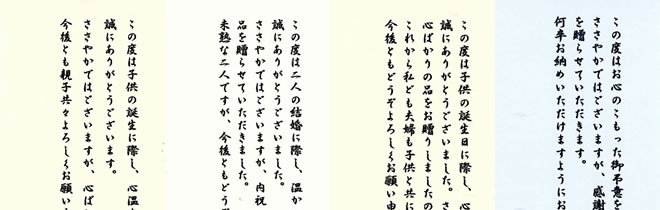 この度は子供の誕生に際し、心温
誠にありがとうございます。
ささやかではございますが、心ば
今後とも親子共々よろしくお願い
この度は二人の結婚に際し、温か
誠にありがとうございました。
ささやかではございますが、内祝
品を贈らせていただきました。
未熟な二人ですが、今後ともどう
この度は子供の誕生日に際し、心
誠にありがとうございます。さ
心ばかりの品をお贈りしましたの
これから私ども夫婦も子供と共に
今後ともどうぞよろしくお願い申
この度はお心のこもった御弔意を
ささやかではございますが、感謝
を贈らせていただきます。
何卒お納めいただけますようにお